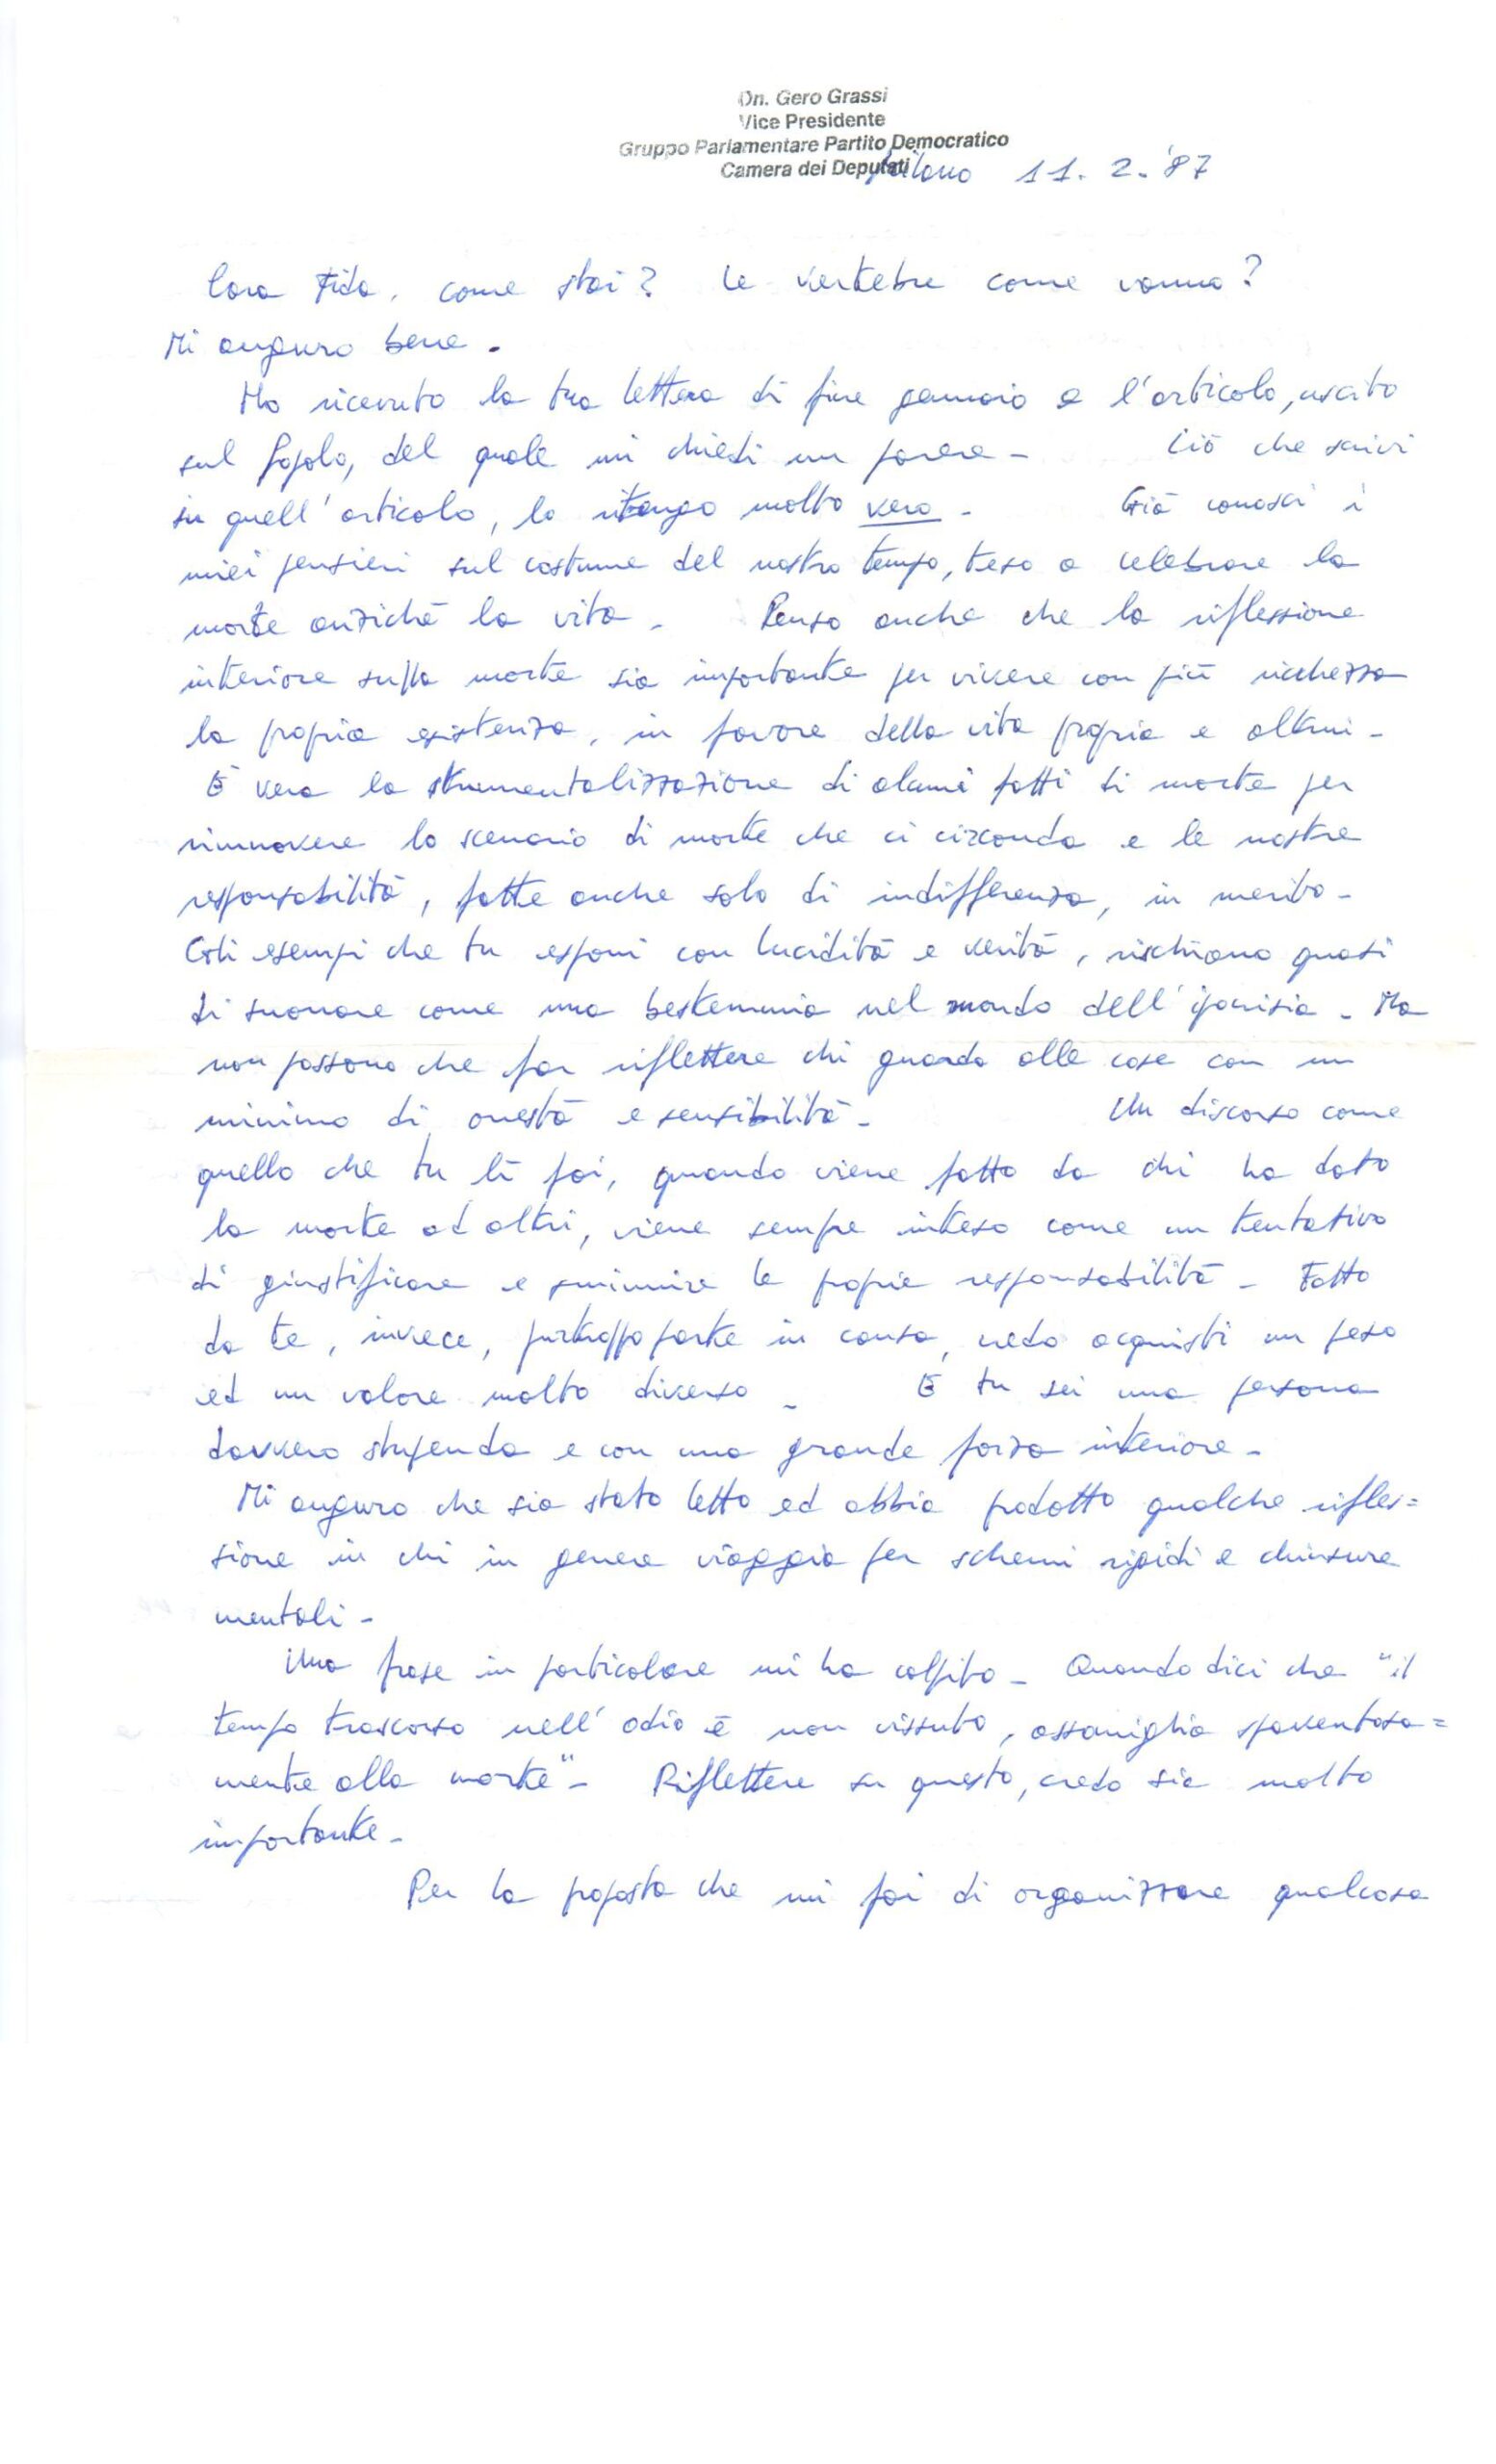 On. Gero Grassi
Vice Presidente
Gruppo Parlamentare Partito Democratico
Camera dei Deputati
Milano 11. 2. '87
Cara Fida, come stai? Le vertebre come vanno?
Mi auguro bene.
Ho ricevuto la tua lettera di fine gennaio e l'articolo, uscito
sul Popolo, del quale mi chiedi un parere - Ciò che scrivi
in quell'articolo, lo ritengo molto vero - Già conosci i
miei pensieri sul costume del nostro tempo, teso a celebrare la
morte anziché la vita - Penso anche che la riflessione
interiore sulla morte sia importante per vivere con più ricchezza
la propria esistenza, in favore della vita propria e altrui -
È vera la strumentalizzazione di alcuni fatti di morte per
rimuovere lo scenario di morte che ci circonda e le nostre
responsabilità, fatte anche solo di indifferenza, in merito -
Gli esempi che tu esponi con lucidità e verità, rischiano quasi
di suonare come una bestemmia nel mondo dell'ipocrisia - Ma
non possono che far riflettere chi guarda alle cose con un
minimo di onestà e sensibilità - Un discorso come
quello che tu lì fai, quando viene fatto da chi ha dato
la morte ad altri, viene sempre inteso come un tentativo
di giustificare e sminuire le proprie responsabilità - Fatto
da te, invece, purtroppo parte in causa, credo acquisti un peso
ed un valore molto diverso - E tu sei una persona
davvero stupenda e con una grande forza interiore -
Mi auguro che sia stato letto ed abbia prodotto qualche rifles=
sione in chi in genere viaggia per schemi rigidi e chiusure
mentali -
Una frase in particolare mi ha colpito - Quando dici che "il
tempo trascorso nell'odio è non vissuto, assomiglia spaventosa=
mente alla morte" - Riflettere su questo, credo sia molto
importante -
Per la proposta che mi fai di organizzare qualcosa